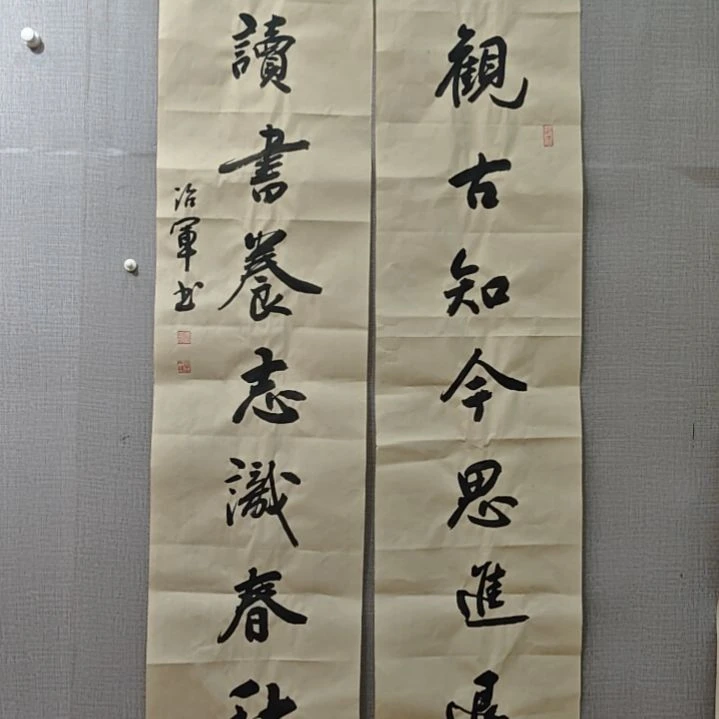 觀古知今思進退
讀書養志識春秋
治軍书